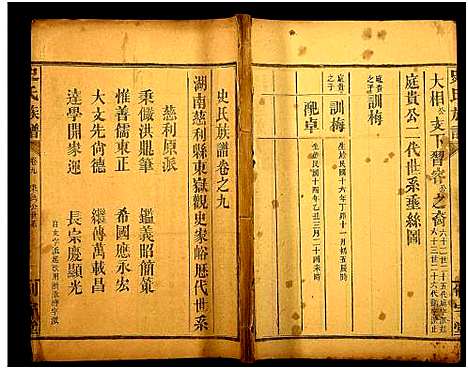 大相公支下習容公之裔
庭貴公二代世系垂絲圖
庭貴之子
訓梅
生於民國十六年丁卯十一月初五辰時
庭貴之子
配卓
生於民國十四年乙丑三月二十四未時
史氏族譜卷之九
湖南慈利縣東嶽觀史家峪歷代世系
慈利原派
秉儆洪鼎筆 鑑義昭簡策
惟善儒東正 希國應永宏
大文先尚德 繼傳萬載昌
達學開家運 長宗慶顯光
史氏族譜
卷九